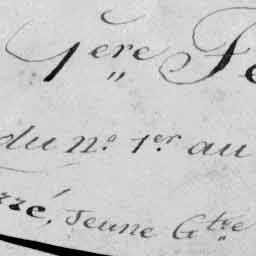 1ère Fe
du n.º 1.er au
rré, Jeune G.tre